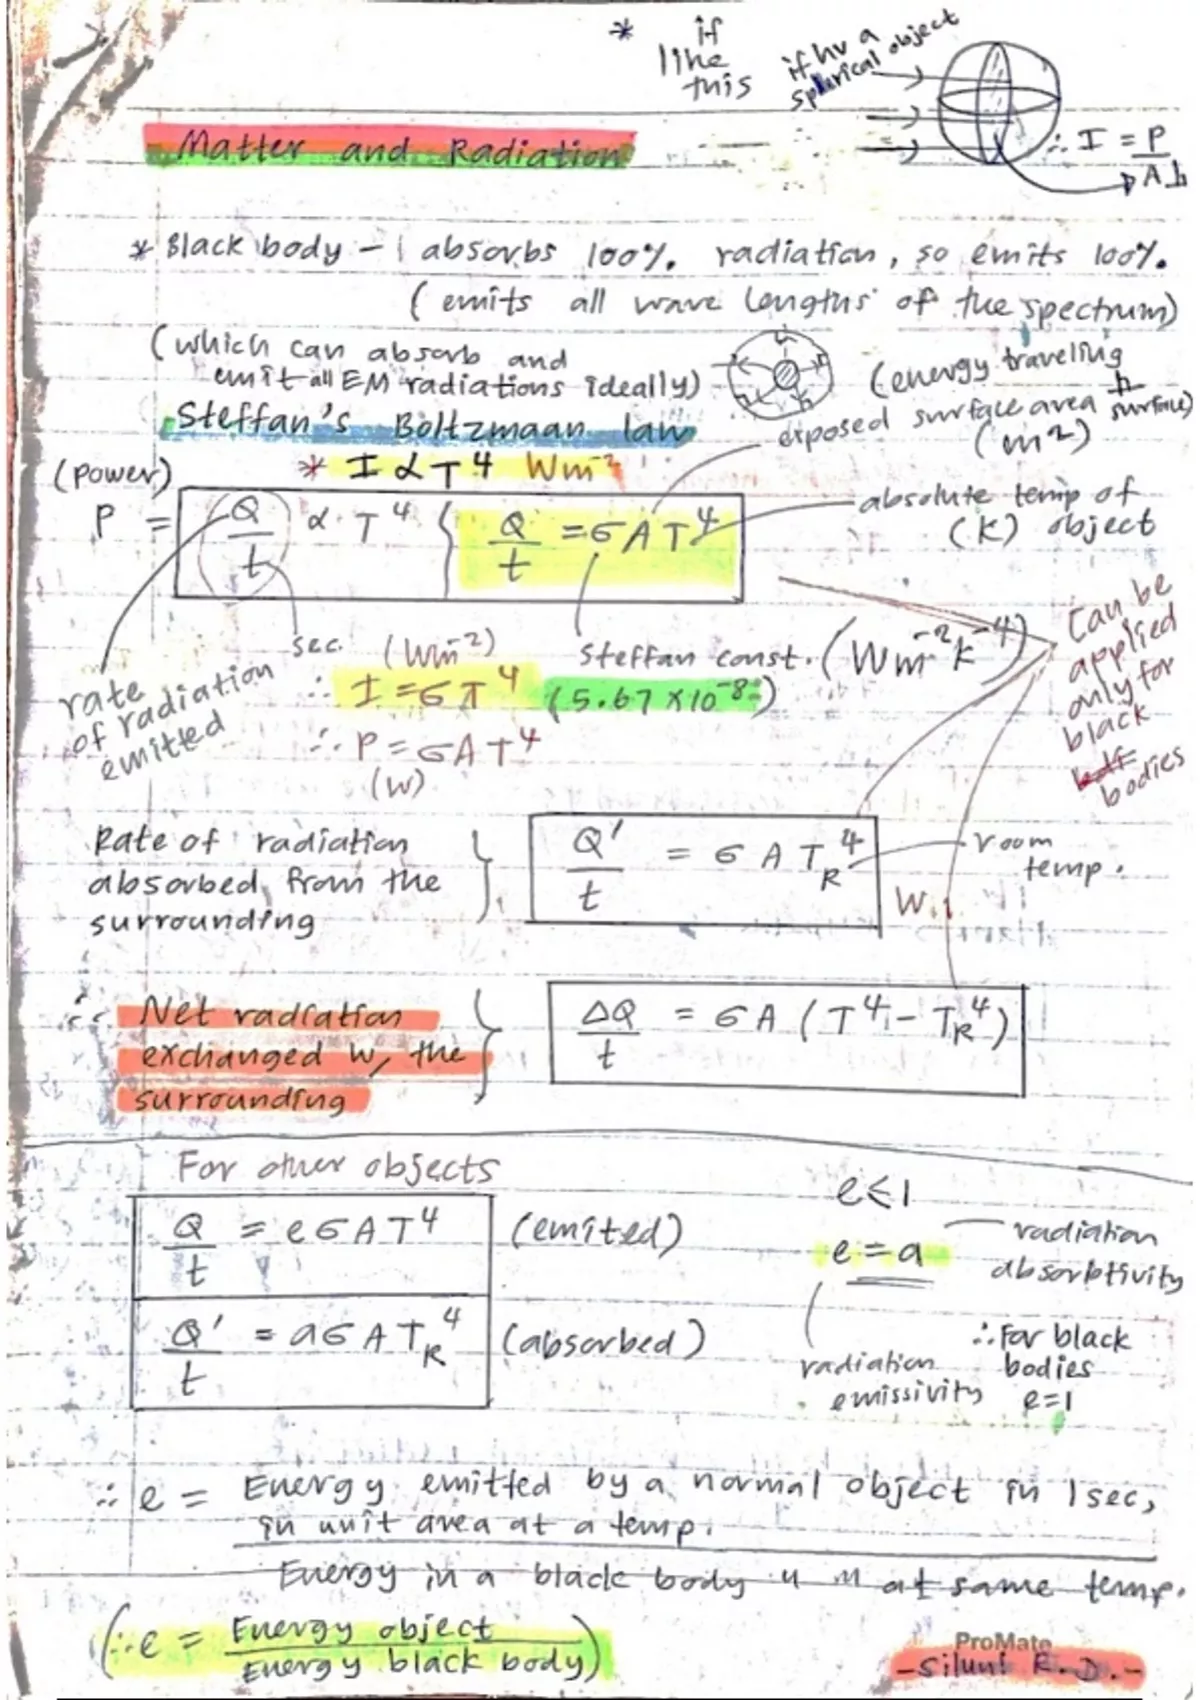 * if
like
this
if hv a
spherical object
∴ I = P/A⊥
Matter and Radiation
* Black body - absorbs 100%. radiation, so emits 100%.
(emits all wave lengths of the spectrum)
(which can absorb and
emit all EM radiations ideally)
(energy traveling
h surface)
Steffan's Boltzmaan law
exposed surface area
(m²)
(power)
* I ∝ T⁴ Wm⁻²
P = Q/t ∝ T⁴ { Q/t = σAT⁴
absolute temp of
(K) object
sec.
(Wm⁻²)
Steffan const. (Wm⁻²K⁻⁴)
∴ I = σT⁴ (5.67 × 10⁻⁸)
rate
of radiation
emitted
∴ P = σAT⁴
(W)
Can be
applied
only for
black
bodies
Rate of radiation
absorbed from the
surrounding
Q'/t = σAT_R⁴
W
room
temp.
∴ Net radiation
exchanged w, the
surrounding
ΔQ/t = σA(T⁴ - T_R⁴)
For other objects
Q/t = eσAT⁴ (emitted)
Q'/t = aσAT_R⁴ (absorbed)
e ≤ 1
e = a
radiation
absorbtivity
radiation
emissivity
∴ For black
bodies
e=1
∴ e = Energy emitted by a normal object in 1sec,
in unit area at a temp.
Energy in a black body " " at same temp.
(∴ e = Energy object
Energy black body)
ProMate
-Silunl R.D.-